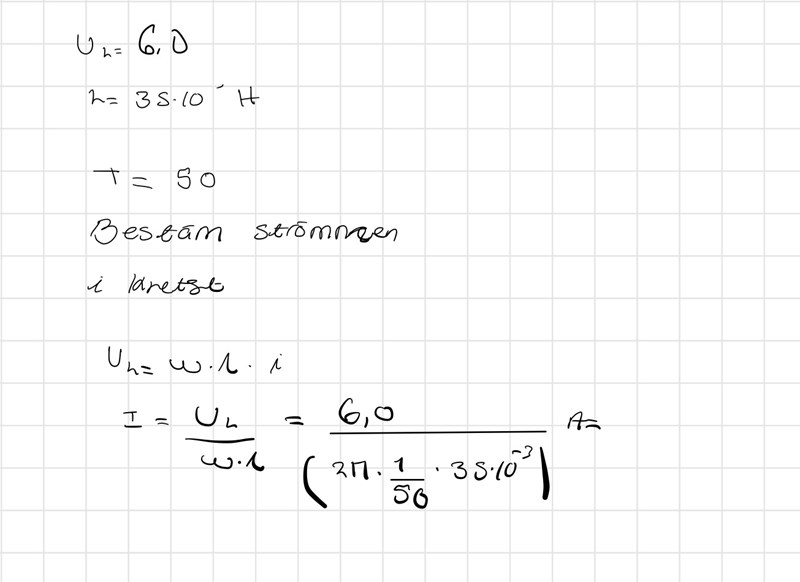 U_L= 6,0
L= 35·10⁻ H
T= 50
Bestäm strömmen
i kretst
U_L= ω·L·i
I = U_L/ω·L = 6,0/(2π·1/50·35·10⁻³) A=